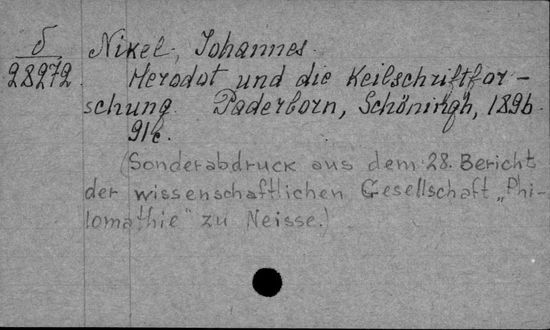 б Nikel, Johannes.
28272 Herodot und die Keilschriftfor-
schung. Paderborn, Schöningh, 1896.
91c.
(Sonderabdruck aus dem 28. Bericht
der wissenschaftlichen Gesellschaft „Phi-
lomathie" zu Neisse.)